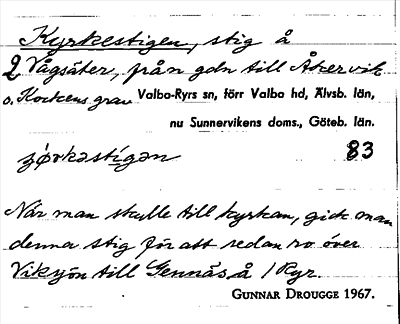 Kyrkestigen, stig å
2 Vågsäter, från gdn till Åkervik
o. Kockens grav Valbo-Ryrs sn, förr Valbo hd, Älvsb. län,
nu Sunnervikens doms., Göteb. län.
83
När man skulle till kyrkan, gick man
denna stig för att sedan ro över
Viksjön till Gennäs å / Ryr.
GUNNAR DROUGGE 1967.